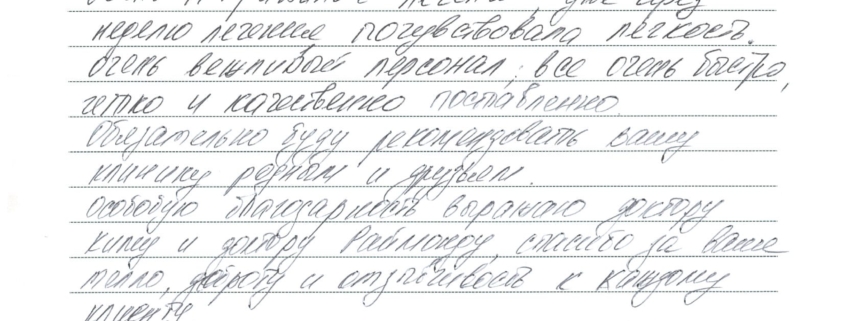 лечения, уже через
неделю лечения почувствовала легкость.
Очень вежливый персонал, все очень быстро,
четко и качественно поставленно.
Обязательно буду рекомендовать вашу
клинику родным и друзьям.
Особую благодарность выражаю доктору
Киму и доктору Раймонду, спасибо за ваше
тепло, доброту и отзывчивость к каждому
клиенту